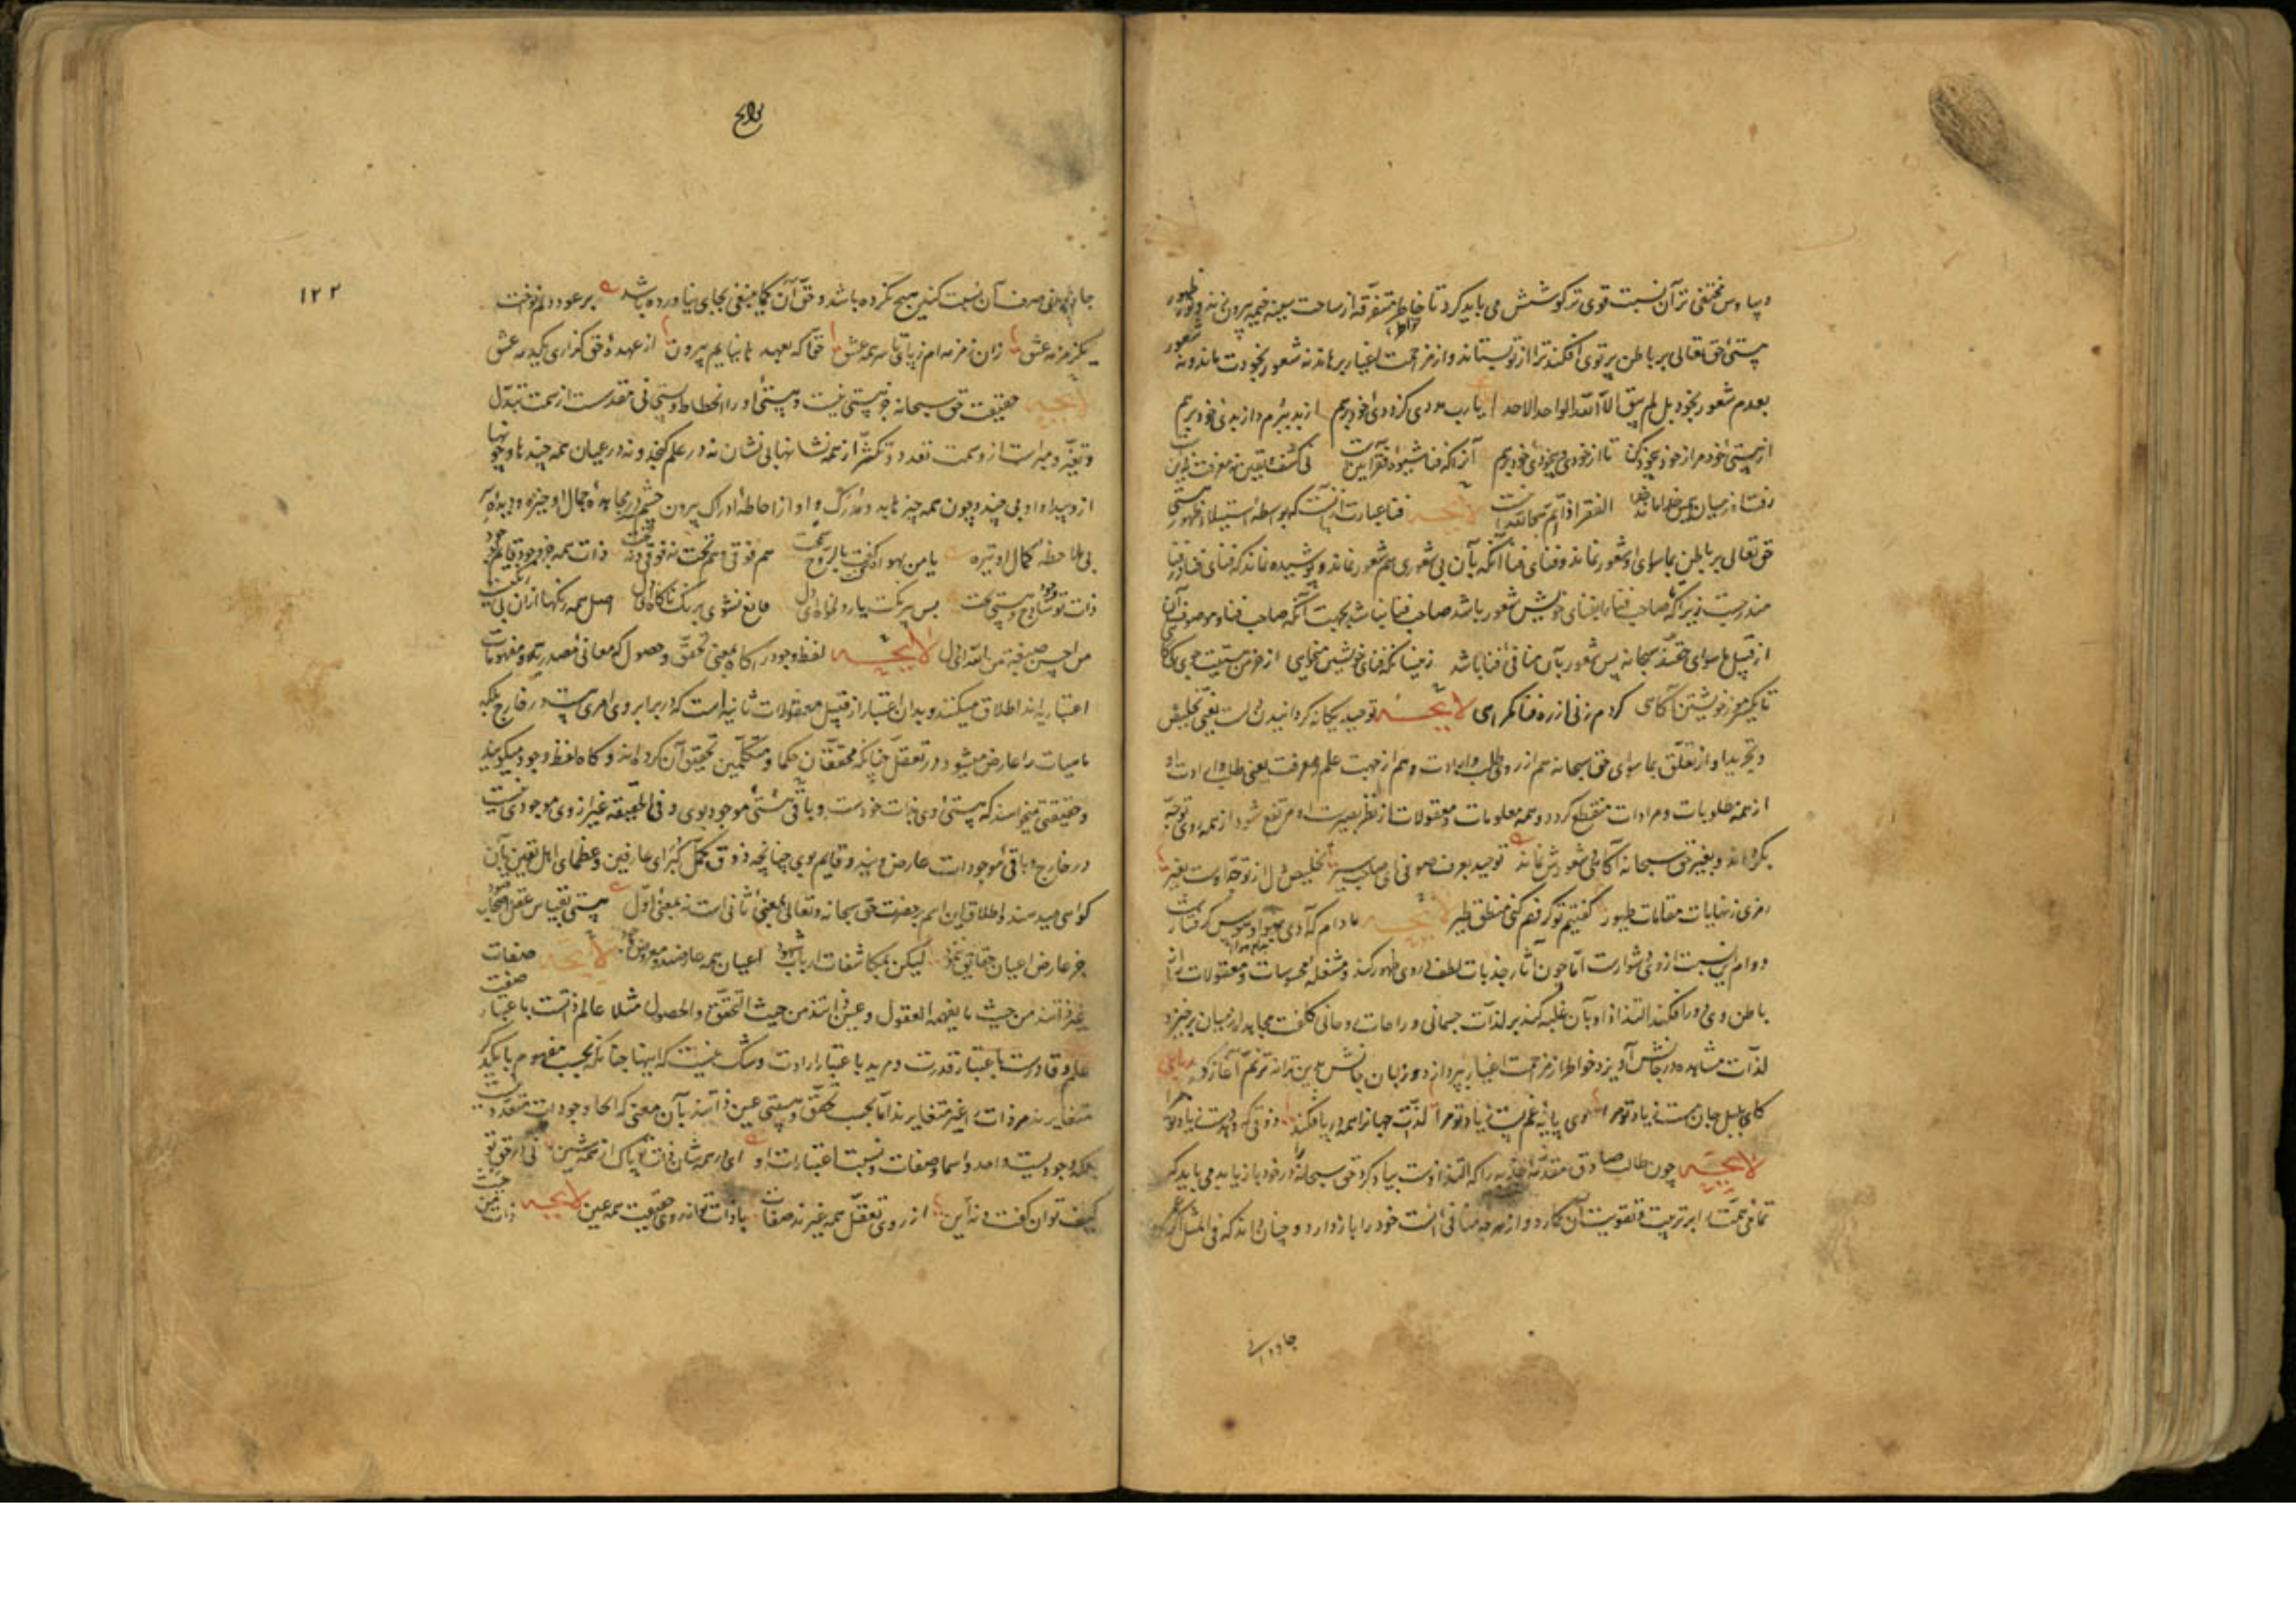 و سپاس مختفی تر آن نسبت قوی تر کوشش می باید کرد تا خاطر متفرقه از ساحت سینه خیمه بیرون زند و نور ظهور
هستی حق تعالی بر باطن پرتوی افکند ترا از تو بستاند و از مزاحمت اغیار برهاند نه شعور بخودت ماند و نه شعور
بعدم شعور بخود بل لم یبق الا الله الواحد الاحد یا رب مددی کز دوئی خود برهم از بد ببرم و از بدی خود برهم
از هستی خود مرا ز خود بیخود کن تا از خودی و بیخودی خود برهم آنرا که فنا شیوه و فقر آیین است نی کشف و یقین نه معرفت نه دین است
رفت او ز میان همین خدا ماند خدا الفقر اذا تم هو الله اینست لایحه فنا عبارت از آنست که بواسطه استیلاء ظهور هستی
حق تعالی بر باطن بماسوای او شعور نماند و فنای فنا آنکه بآن بی شعوری هم شعور نماند و پوشیده نماند که فنای فنا در فنا
مندرجست زیرا که صاحب فنا را بفنای خویش شعور باشد صاحب فنا نباشد بجهت آنکه صاحب فنا و موصوف آن
از قبیل ماسوای حقند سبحانه پس شعور بآن منافی فنا باشد زینسان که فنای خویشتن میخواهی از خرمن هستیت جوی کی کاهی
تا یکسر مو ز خویشتن آگاهی گر دم زنی از ره فنا گمراهی لایحه توحید یگانه گردانیدن دل است یعنی تخلیص
و تجرید او از تعلق بماسوای حق سبحانه هم از روی طلب و ارادت و هم از جهت علم و معرفت یعنی طلب و ارادت او
از همه مطلوبات و مرادات منقطع گردد و همه معلومات و معقولات از نظر بصیرت او مرتفع شود از همه روی توجه
بگرداند و بغیر حق سبحانه آگاهی و شعورش نماند توحید بعرف صوفی ای صاحب سیر تخلیص دل از توجه اوست بغیر
رمزی ز نهایات مقامات طیور گفتیم تو گر فهم کنی منطق طیر لایحه مادام که آدمی بدام هوا و هوس گرفتار است
دوام این نسبت از وی دشوارست اما چون آثار جذبات لطف در وی ظهور کند و مشغله محسوسات و معقولات را از
باطن وی دور افکند التذاذ او بآن غلبه کند بر لذات جسمانی و راحات روحانی کلفت مجاهده از میان برخیزد
لذات مشاهده در جانش آویزد خواطر از مزاحمت اغیار بپردازد و زبان جانش بدین ترانه ترنم آغاز کند رباعی
کای بلبل جان مست ز یاد تو مرا وی پایه غم پست ز یاد تو مرا لذات جهانرا همه در پا فکند ذوقی که دهد دست ز یاد تو مرا
لایحه چون طالب صادق مقدمه جذبه را که التذاذست بیاد کرد حق سبحانه در خود باز یابد می باید که
تمامی همت را بر تربیت و تقویت آن گمارد و از هر چه منافی آنست خود را باز دارد و چنان داند که فی المثل اگر عمر
جاودانی
لوایح
۱۲۲
جاودانی صرف آن نسبت کند هیچ نکرده باشد و حق آن کما ینبغی بجای نیاورده باشد بر عود دلم نواخت
یک زمزمه عشق زان زمزمه ام ز پای تا سر همه عشق حقا که بعهد ها نیایم بیرون از عهده حق گزاری یکدمه عشق
لایحه حقیقت حق سبحانه جز هستی نیست و هستی او را انحطاط و پستی نی مقدس است از سمت تبدل
و تغیر و مبراست از وصمت تعدد و تکثر از همه نشانها بی نشان نه در علم گنجد و نه در عیان همه چندها و چونها
ازو پیدا و او بی چند و چون همه چیز باو مدرک و او از احاطه ادراک بیرون چشم سر در مشاهده جمال او خیره و دیده سر
بی ملاحظه کمال او تیره یا من بهواه کنت بالروح سمحت هم فوقی و هم تحت نه فوقی و نه تحت ذات همه جز وجود و قایم بوجود
ذات تو ساذج وجود و هستی بحت بس بیرنگست یار دلخواه ای دل قانع نشوی برنگ ناگاه ای دل اصل همه رنگها از آن بیرنگیست
من احسن صبغة من الله ای دل لایحه لفظ وجود را گاه بمعنی تحقق و حصول که معانی مصدریه و مفهومات
اعتباریه اند اطلاق میکنند و بدان اعتبار از قبیل معقولات ثانیه است که در برابر وی امری نیست در خارج بلکه
ماهیات را عارض میشود در تعقل چنانکه محققان حکما و متکلمین تحقیق آن کرده اند و گاه لفظ وجود میگویند
و حقیقتی میخواهند که هستی وی بذات خودست و باقی هستی موجودات بوی و فی الحقیقه غیر از وی موجودی نیست
در خارج و باقی موجودات عارض ویند و قایم بوی چنانچه ذوق کمل کبرای عارفین و عظمای اهل یقین بآن
گواهی میدهند و اطلاق این اسم بر حضرت حق سبحانه و تعالی بمعنی ثانی است نه بمعنی اول هستی بقیاس عقل اصحاب قیود
جز عارض اعیان و حقایق ننمود لیکن بمکاشفات ارباب شهود اعیان همه عارضند و معروض وجود لایحه صفات
غیر ذاتند من حیث ما یفهمه العقول و عین ذاتند من حیث التحقق و الحصول مثلا عالم ذاتست باعتبار صفت
علم و قادرست باعتبار قدرت و مرید باعتبار ارادت و شک نیست که اینها چنانکه بحسب مفهوم با یکدیگر
متغایرند مر ذات را نیز متغایرند اما بحسب تحقق و هستی عین ذاتند بآن معنی که آنجا وجودات متعدد نیست
بلکه وجودیست واحد و اسما و صفات و نسبت اعتبارات او ای در همه شان ذات تو پاک از همه شین نی در حق تو
کیف توان گفت و نه این از روی تعقل همه غیرند صفات با ذات تو از روی حقیقت همه عین لایحه ذات من حیث